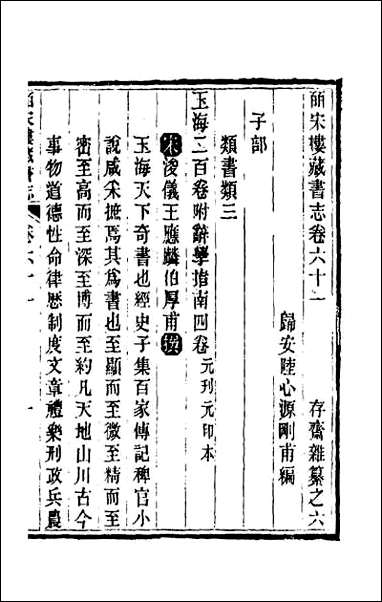 皕宋樓藏書志卷六十一　存齋雜纂之六
歸安陸心源剛甫編
子部
類書類三
玉海二百卷附辭學指南四卷　元刊元印本
宋浚儀王應麟伯厚甫撰
玉海天下奇書也經史子集百家傳記稗官小
說咸采摭焉其爲書也至顯而至微至精而至
密至高而至深至博而至約凡天地山川古今
事物道德性命律歷制度文章禮樂刑政兵農
皕宋樓藏書志　卷六十一　一